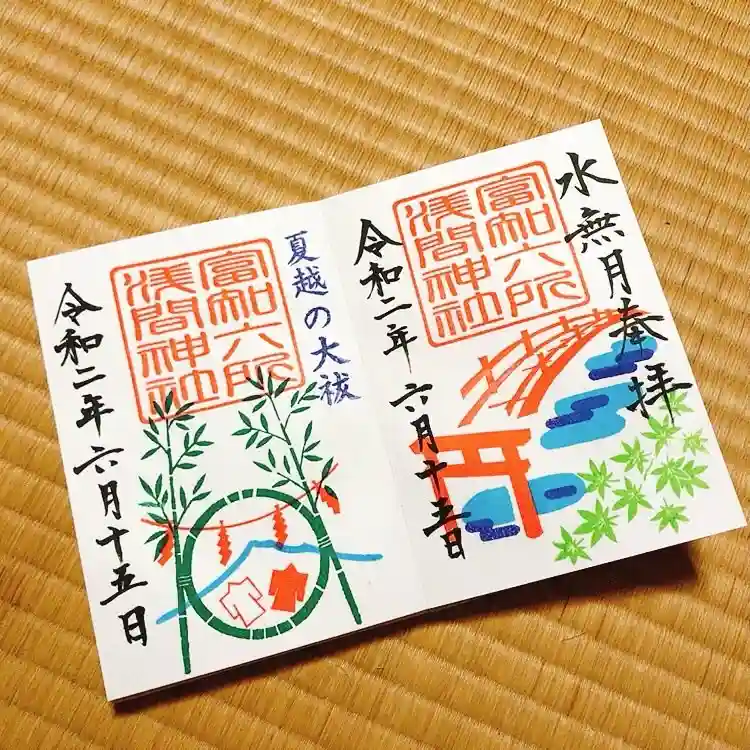 水無月奉拝
富知六所
浅間神社
令和二年 六月十五日
夏越の大祓
富知六所
浅間神社
令和二年 六月十五日